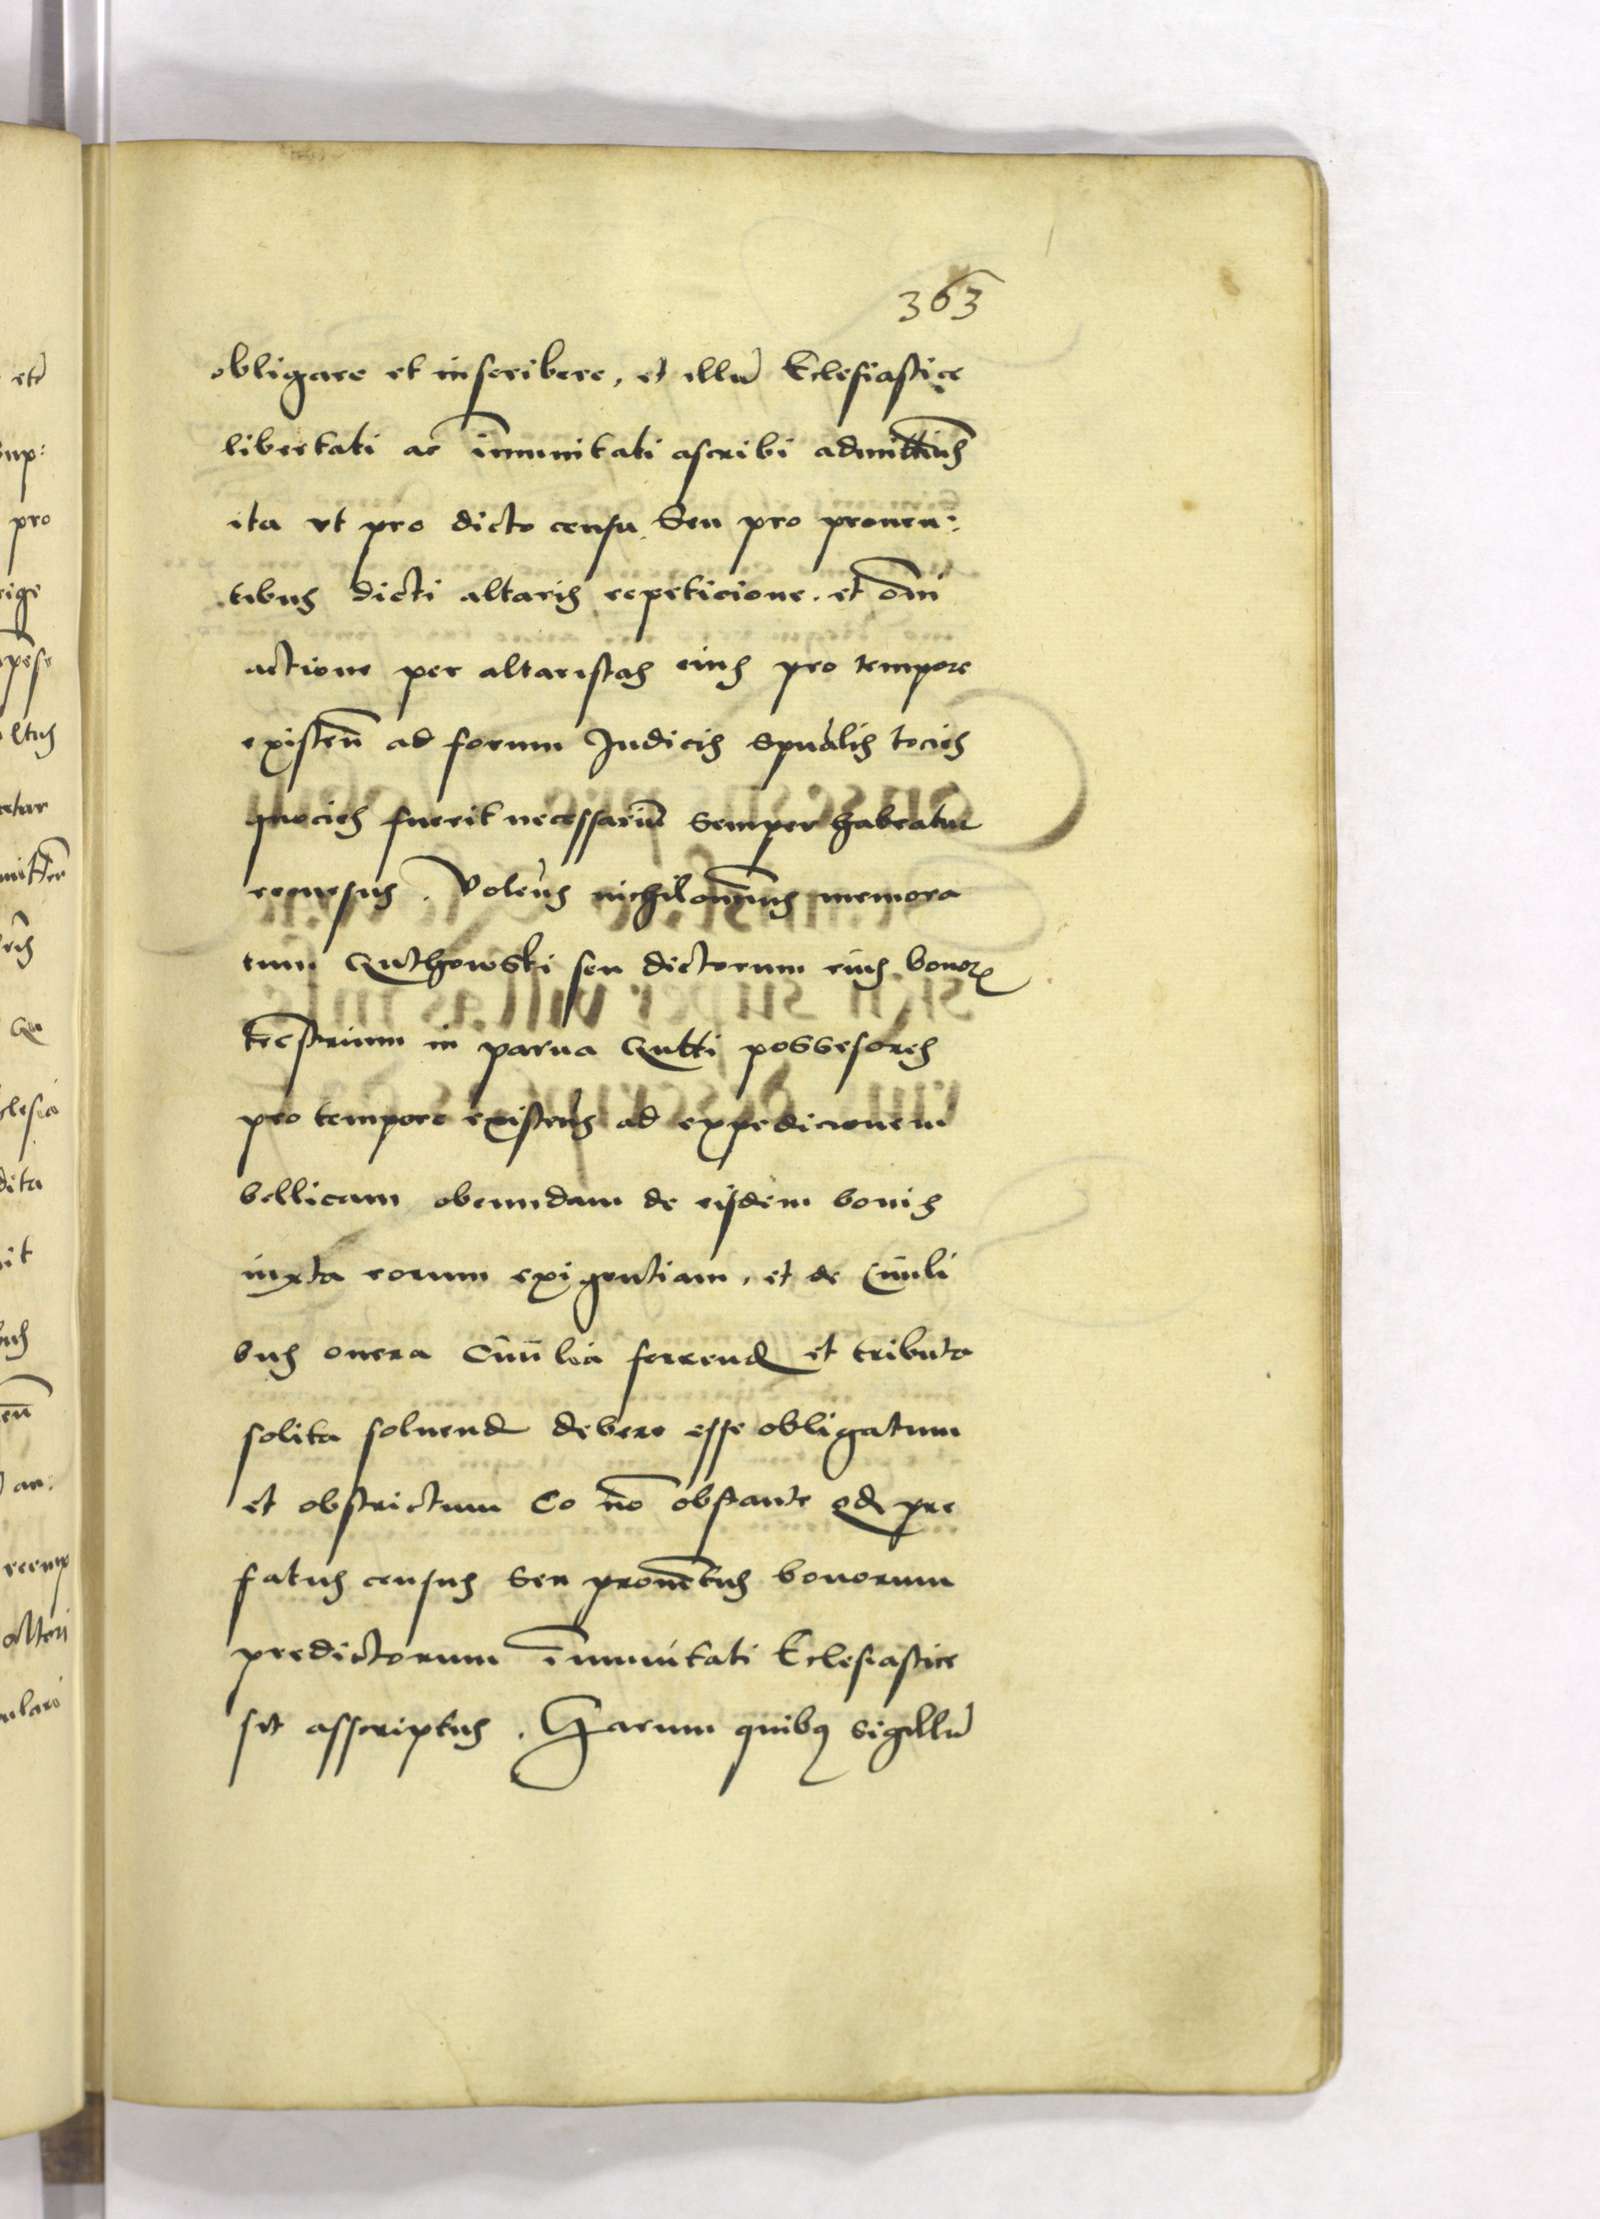 363
obligare et inscribere, et illũ Eclesiastice
libertati ac im̄unitati ascribi admittimus
ita vt pro dicto censu Seu pro prouen:
tibus dicti altaris repeticione. et om̄i
actione per altaristas eius pro tempore
existeñ ad forum Judicis Spũalis tocies
quocies fuerit necessariũ Semper habeatur
recursus. Voleñs nichilomin̄us memora
tum Quthowski seu dictorum eius bonorꝝ
terrestrium in parua Qutti possesores
pro tempore existeñs ad expedicionem
bellicam obeundam de eisdem bonis
iuxta eorum exigentiam, et de Ciuili
bus onera Ciuilia ferrend et tributa
solita soluend debere esse obligatum
et obstrictum Eo nō obstante qđ pre
fatus census Seu prouētus bonorum
predictorum im̄unitati Eclesiastice
sit asscriptus. Harum quibꝰ sigillũ